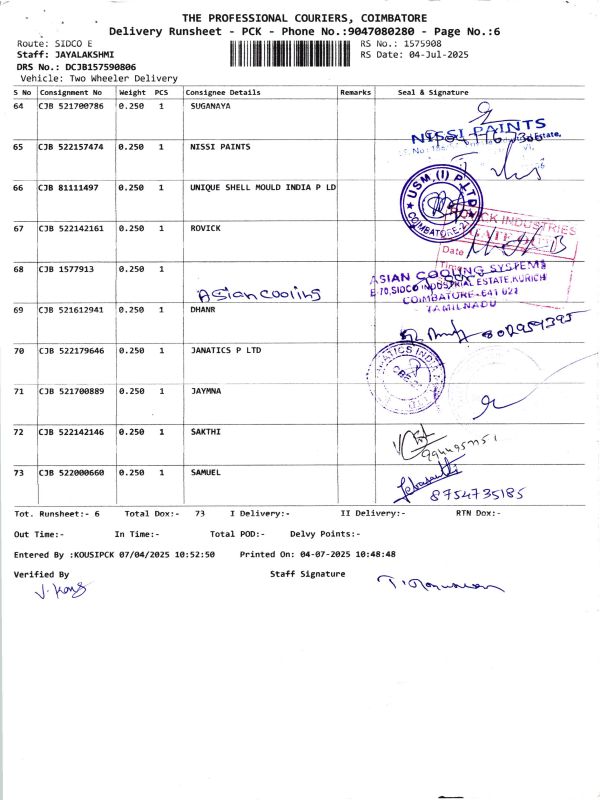 THE PROFESSIONAL COURIERS, COIMBATORE
Delivery Runsheet - PCK - Phone No.:9047080280 - Page No.:6
Route: SIDCO E RS No.: 1575908
Staff: JAYALAKSHMI RS Date: 04-Jul-2025
DRS No.: DCJB157590806
Vehicle: Two Wheeler Delivery
S No Consignment No Weight PCS Consignee Details Remarks Seal & Signature
64 CJB 521700786 0.250 1 SUGANAYA
NISSI PAINTS
65 CJB 522157474 0.250 1 NISSI PAINTS
66 CJB 81111497 0.250 1 UNIQUE SHELL MOULD INDIA P LD
USM (I) P LTD
COIMBATORE-21
67 CJB 522142161 0.250 1 ROVICK
ROVICK INDUSTRIES
Date
68 CJB 1577913 0.250 1
Asian cooling
ASIAN COOLING SYSTEMS
E 70, SIDCO INDUSTRIAL ESTATE, KURICHI
COIMBATORE-641 021
TAMILNADU
69 CJB 521612941 0.250 1 DHANR
70 CJB 522179646 0.250 1 JANATICS P LTD
71 CJB 521700889 0.250 1 JAYMNA
72 CJB 522142146 0.250 1 SAKTHI
73 CJB 522000660 0.250 1 SAMUEL
8754735185
Tot. Runsheet:- 6 Total Dox:- 73 I Delivery:- II Delivery:- RTN Dox:-
Out Time:- In Time:- Total POD:- Delvy Points:-
Entered By :KOUSIPCK 07/04/2025 10:52:50 Printed On: 04-07-2025 10:48:48
Verified By Staff Signature